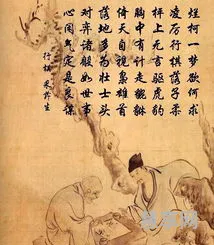 烂柯一梦欲何求
凌厉行棋落子柔
枰上无言驱虎豹
胸中有计走貔貅
倚天自视枭雄首
落地多为壮士头
对弈诸般如世事
心闲气定是良谋
行棋 采芹生